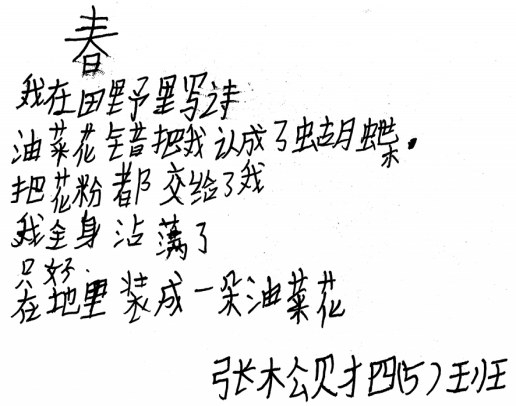 春
我在田野里写诗
油菜花错把我认成了蝴蝶.
把花粉都交给了我
我全身沾满了
只好.
在地里装成一朵油菜花
张木公贝才四(5)班